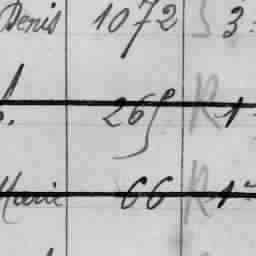 Denis 1072 3
265 R 1
Marie 66 R 1